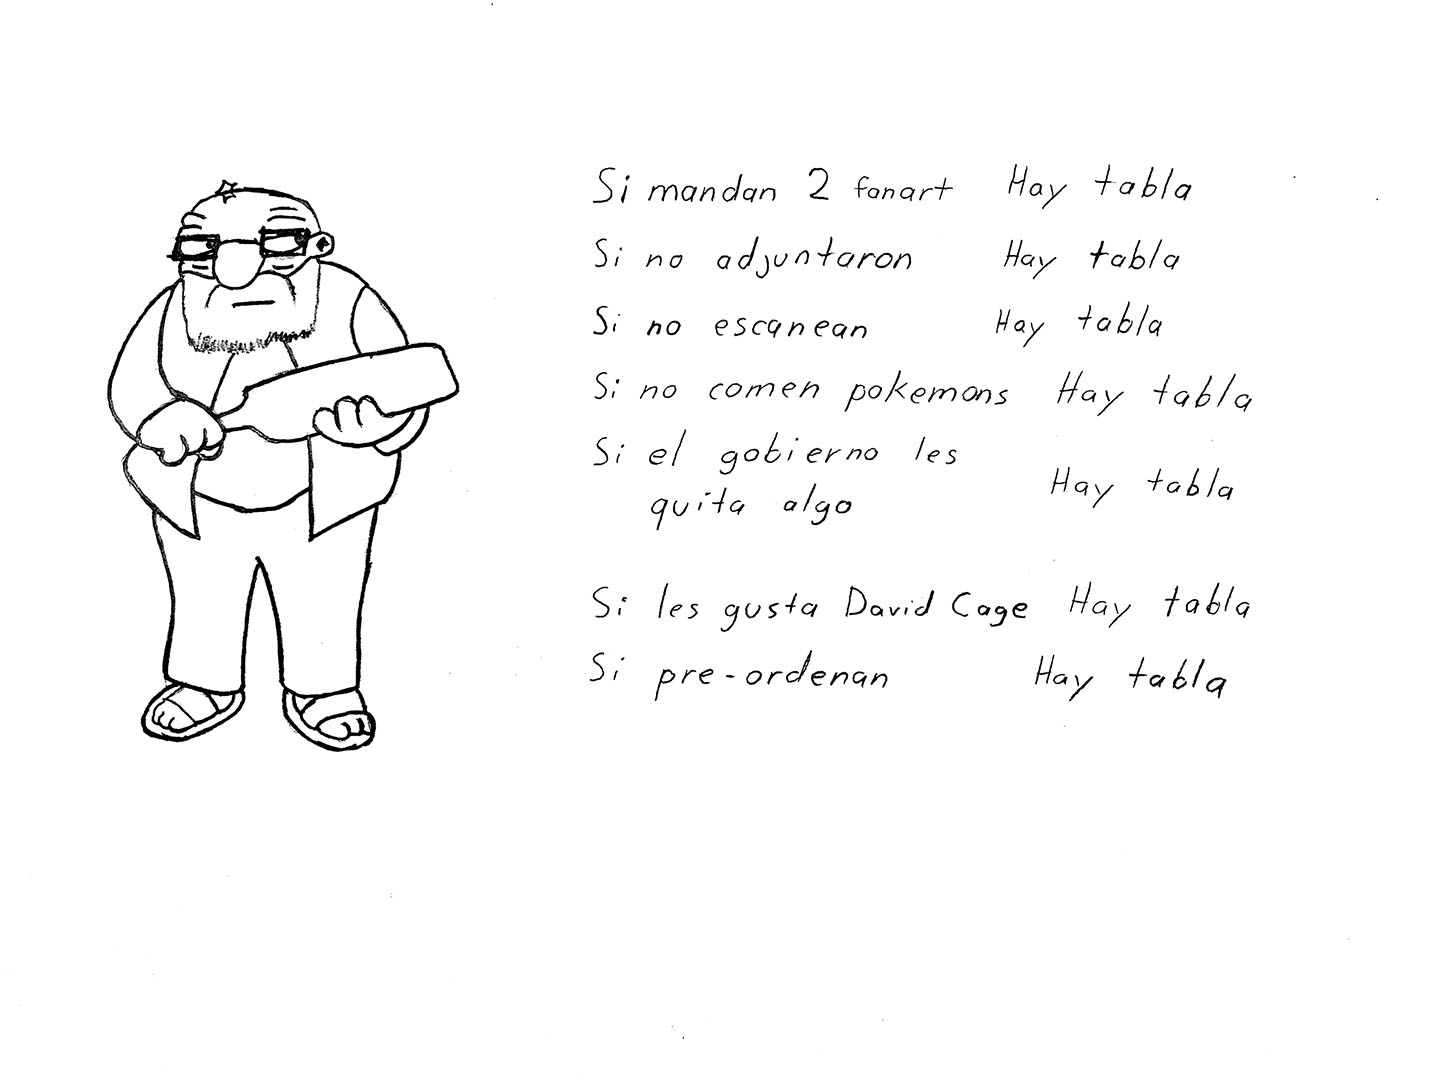 Si mandan 2 fanart Hay tabla
Si no adjuntaron Hay tabla
Si no escanean Hay tabla
Si no comen pokemons Hay tabla
Si el gobierno les
quita algo Hay tabla
Si les gusta David Cage Hay tabla
Si pre-ordenan Hay tabla